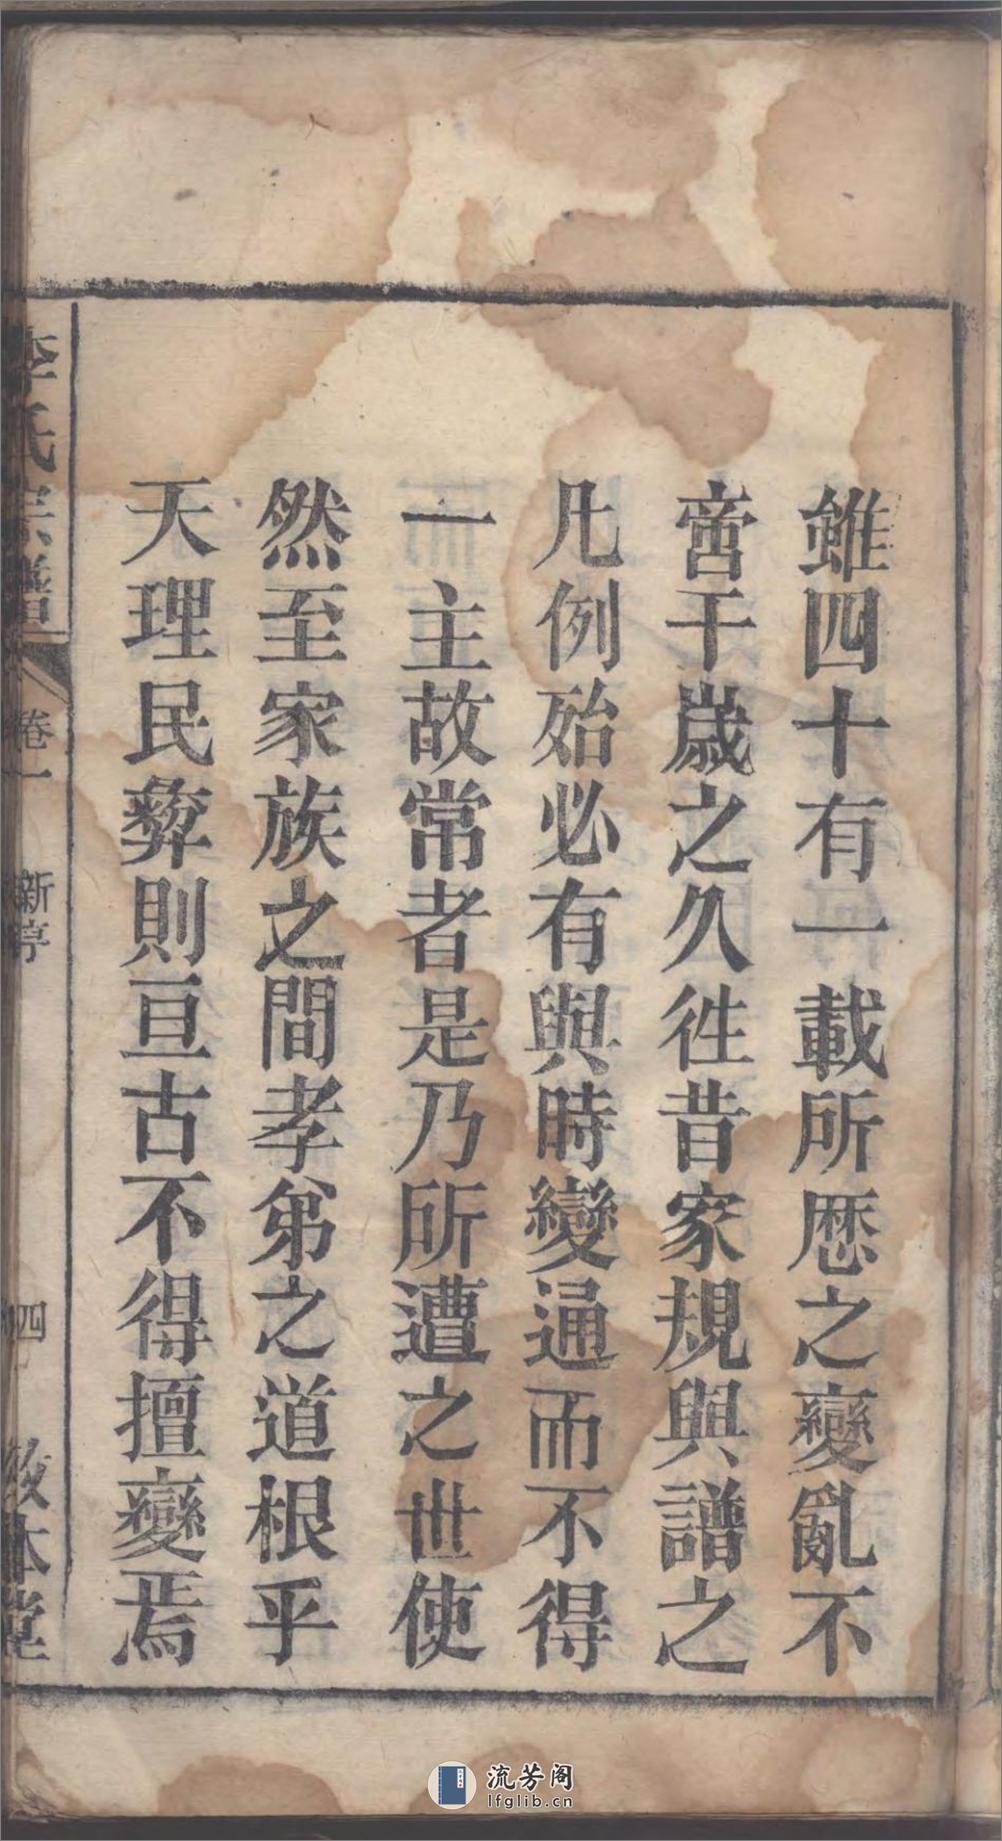 雖四十有一載所歴之變亂不
啻千歲之久徃昔家規與譜之
凡例殆必有與時變通而不得
一主故常者是乃所遭之世使
然至家族之間孝弟之道根乎
天理民彝則亘古不得擅變焉
李氏宗譜
卷一
新序
四
敦本堂
流芳阁
lfglib.cn